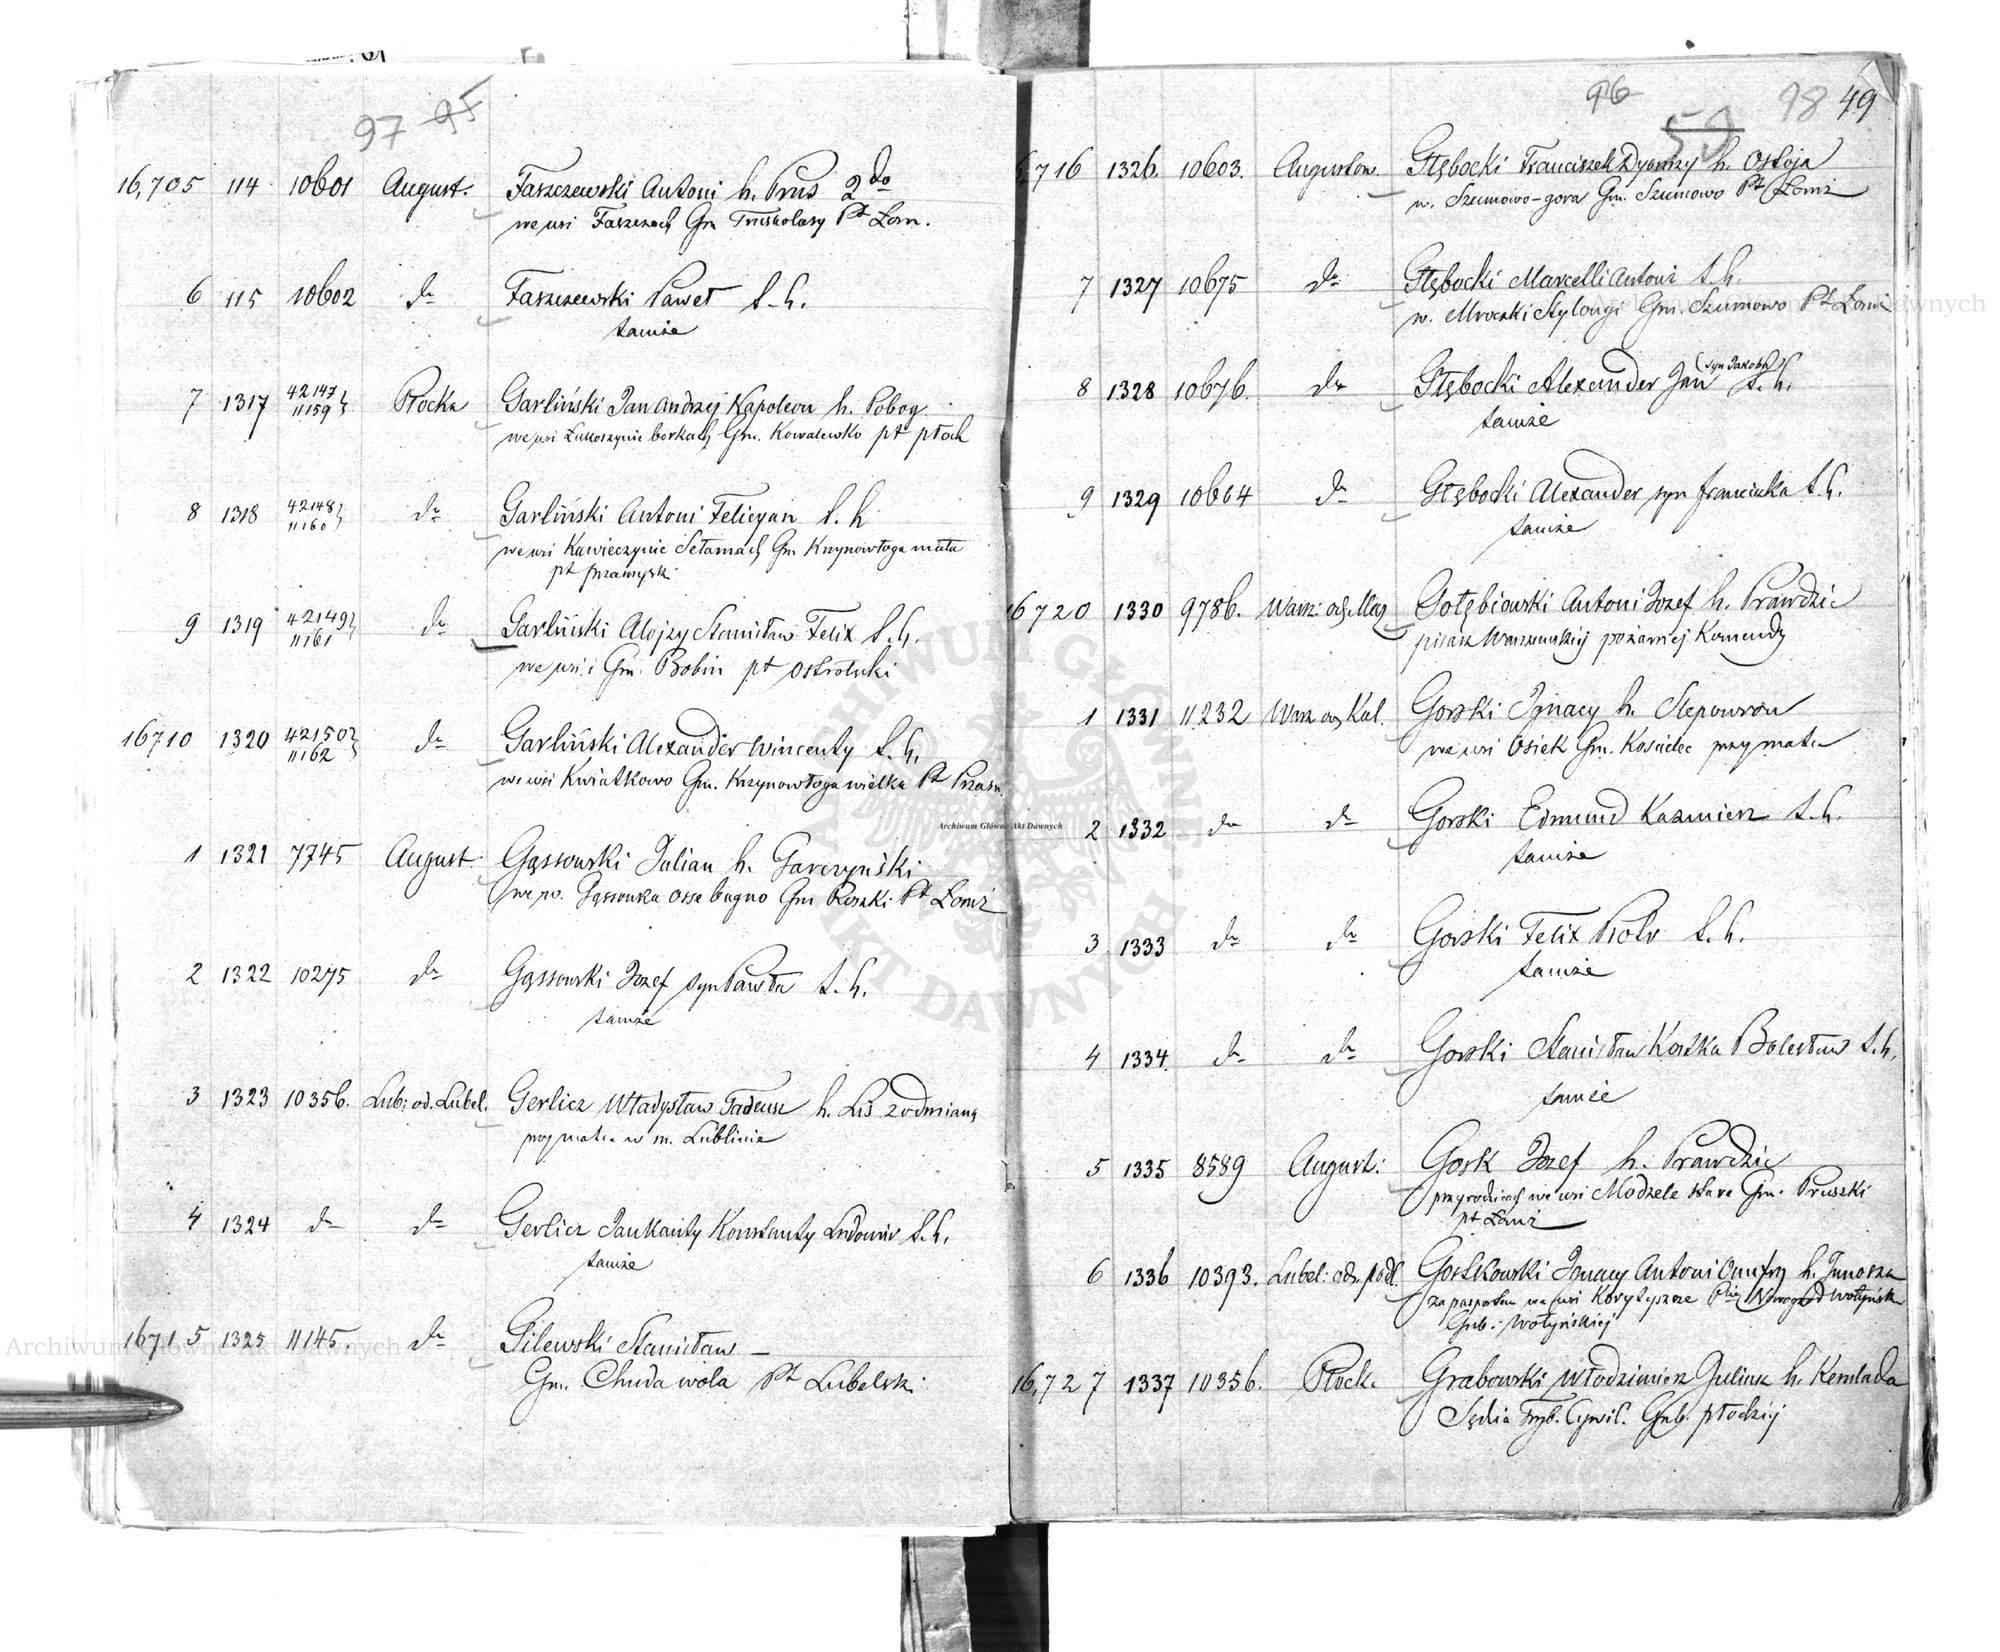 97 95
16,705 114 10601 August. Faszczewski Antoni h. Prus 2do
we wsi Faszczach Gm Truskolasy Pt Łom.
6 115 10602 do Faszczewski Paweł t. h.
tamże
7 1317 42147 Płocka Garliński Jan Andrzej Napoleon h. Pobog
11159
we wsi Łukoszynie borkach Gm. Kowalewko pt płock
8 1318 42148 do Garliński Antoni Felicyan t. h
11160
we wsi Kawieczynie Gm Krzynowłoga mała
pt
9 1319 42149 do Garliński Alojzy Stanisław Felix t. h.
11161
we wsi i Gm. Bobin pt ostrołęcki
16710 1320 42150 do Garliński Alexander Wincenty t. h.
11162
we wsi Kwiatkowo Gm. Krzynowłoga wielka Pt Przasn.
1 1321 7745 August. Gąssowski Julian h. Garczyński
we w. Gąssowka osse bagno Gm Roszki Pt Łomż
2 1322 10275 do Gąssowski Jozef syn Pawła t. h.
tamże
3 1323 10356. Lub: od. Lubel. Gerlicz Władysław Tadeusz h. Lis z odmianą
przy matce w m. Lublinie
4 1324 do do Gerlicz Jan Kanty Konstanty Ludomir t. h.
tamże
16715 1325 11145. do Gilewski Stanisław —
Gm. Chuda wola Pt Lubelski
96 59 98 49
6,716 1326. 10603. Augustow. Głębocki Franciszek Dyonizy h. Ostoja
w. Szumowo-gora Gm. Szumowo Pt Łomż
7 1327 10675 do Głębocki Marcelli Antoni t. h.
w. Mroczki Stylongi Gm. Szumowo Pt Łomż
8 1328 10676. do Głębocki Alexander Jan (syn Jakoba) t. h.
tamże
9 1329 10664 do Głębocki Alexander syn franciszka t. h.
tamże
16720 1330 9786. Warsz: od. Maz Gołębiowski Antoni Jozef h. Prawdzic
pisarz Warszawskiej pożarnej Komendy
1 1331 11232 Warsz od. Kal. Gorski Ignacy h. Slepowron
we wsi Osiek Gm. Koscielec przy matce
2 1332 do do Gorski Edmund Kazmierz t. h.
tamże
3 1333 do do Gorski Felix Piotr t. h.
tamże
4 1334. do do Gorski Stanisław Kostka Bolesław t. h.
tamże
5 1335 8589 August: Gorsk Jozef h. Prawdzic
przy rodzicach we wsi Modzele stare Gm. Pruszki
pt Łomż
6 1336 10393. Lubel: od. podl. Gorzkowski Ignacy Antoni Onufry h. Junosza
za pasportem we wsi Korytyszcze Nowogrod wołyńsk
Gub: Wołyńskiej
16,727 1337 10356. Płock. Grabowski Włodzimierz Juliusz h. Kemlada
Sędzia Tryb. Cywil. Gub. płockiej
Archiwum Główne Akt Dawnych